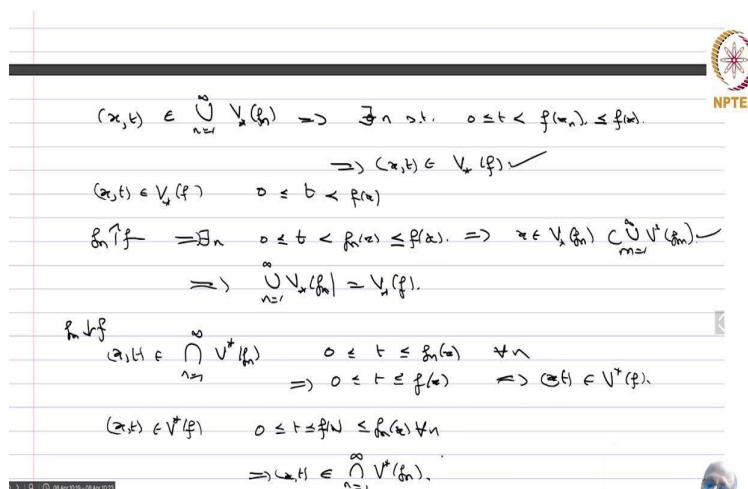 NPTE
(x,t) ∈ ⋃_{n=1}^{∞} V_*(f_n) ⇒ ∃ n s.t. 0 ≤ t < f(x_n) ≤ f(x).
⇒ (x,t) ∈ V_*(f) ✓
(x,t) ∈ V_*(f) 0 ≤ t < f(x)
f_n ↑ f ⇒ ∃ n 0 ≤ t < f_n(x) ≤ f(x). ⇒ x ∈ V_*(f_n) ⊂ ⋃_{m=1}^{∞} V^*(f_m) ✓
⇒ ⋃_{n=1}^{∞} V_*(f_n) = V_*(f).
f_n ↓ f
(x,t) ∈ ⋂_{n=1}^{∞} V^*(f_n) 0 ≤ t ≤ f_n(x) ∀n
⇒ 0 ≤ t ≤ f(x) ⇔ (x,t) ∈ V^*(f).
(x,t) ∈ V^*(f) 0 ≤ t ≤ f(x) ≤ f_n(x) ∀n
⇒ (x,t) ∈ ⋂_{n=1}^{∞} V^*(f_n).